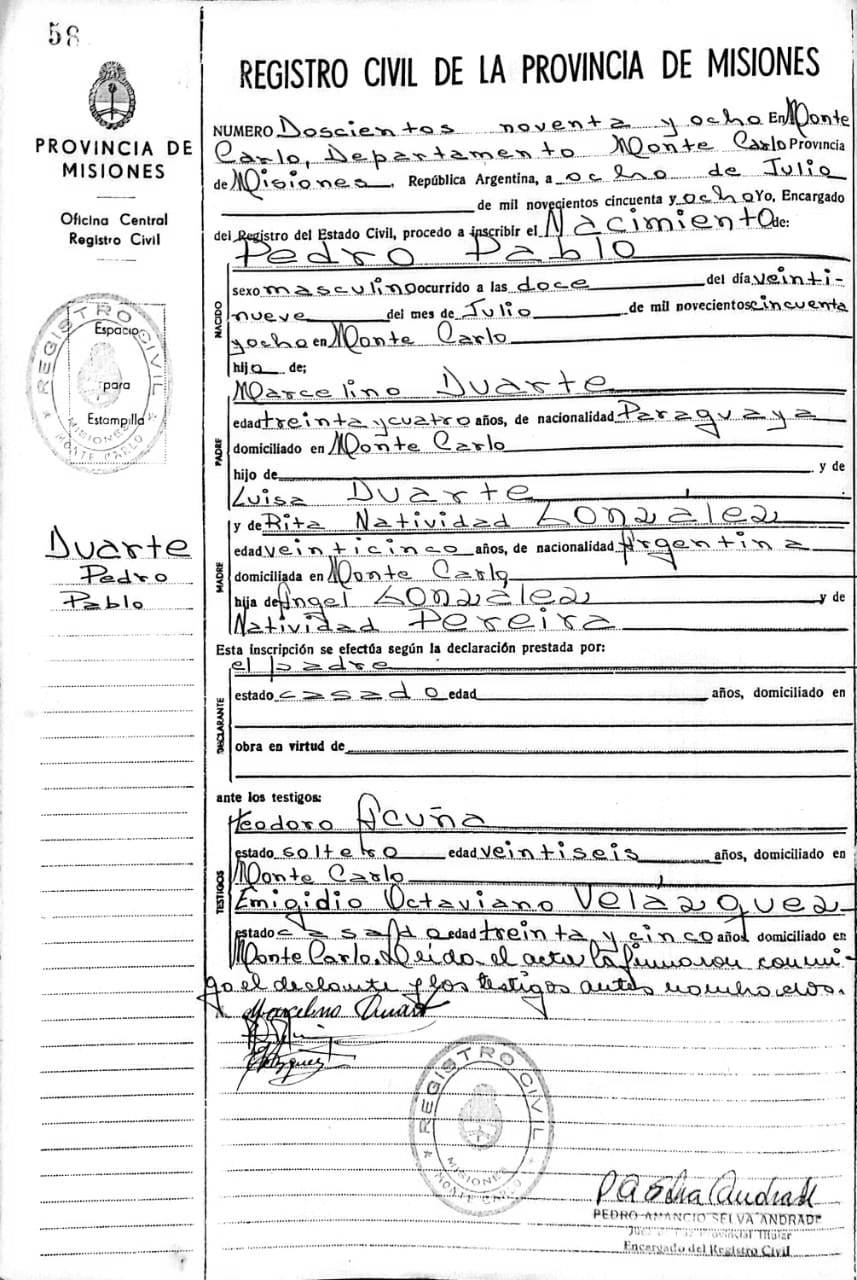 58
PROVINCIA DE
MISIONES
Oficina Central
Registro Civil
REGISTRO CIVIL
Espacio
para
Estampilla
MISIONES
MONTE CARLO
Duarte
Pedro
Pablo
REGISTRO CIVIL DE LA PROVINCIA DE MISIONES
NUMERO Doscientos noventa y ocho En Monte
Carlo, Departamento Monte Carlo Provincia
de Misiones, República Argentina, a ocho de Julio
de mil novecientos cincuenta y ocho Yo, Encargado
del Registro del Estado Civil, procedo a inscribir el Nacimiento de:
Pedro Pablo
NACIDO
sexo masculino ocurrido a las doce del día veinti-
nueve del mes de Julio de mil novecientos cincuenta
y ocho en Monte Carlo
hijo de;
Marcelino Duarte
PADRE
edad treinta y cuatro años, de nacionalidad Paraguaya
domiciliado en Monte Carlo
hijo de y de
Luisa Duarte
y de Rita Natividad González
MADRE
edad veinticinco años, de nacionalidad Argentina
domiciliada en Monte Carlo
hija de Angel González y de
Natividad Pereira
Esta inscripción se efectúa según la declaración prestada por:
el padre
DECLARANTE
estado casado edad años, domiciliado en
obra en virtud de
ante los testigos:
Teodoro Acuña
TESTIGOS
estado soltero edad veintiseis años, domiciliado en
Monte Carlo
Emigidio Octaviano Velázquez
estado casado edad treinta y cinco años domiciliado en
Monte Carlo. Leido el acta la firmaron conmi-
go el declante y los testigos antes nombrados.
Marcelino Duarte
REGISTRO CIVIL
MISIONES
MONTE CARLO
P A Selva Andrade
PEDRO AMANCIO SELVA ANDRADE
Juez de Paz Provincial Titular
Encargado del Registro Civil